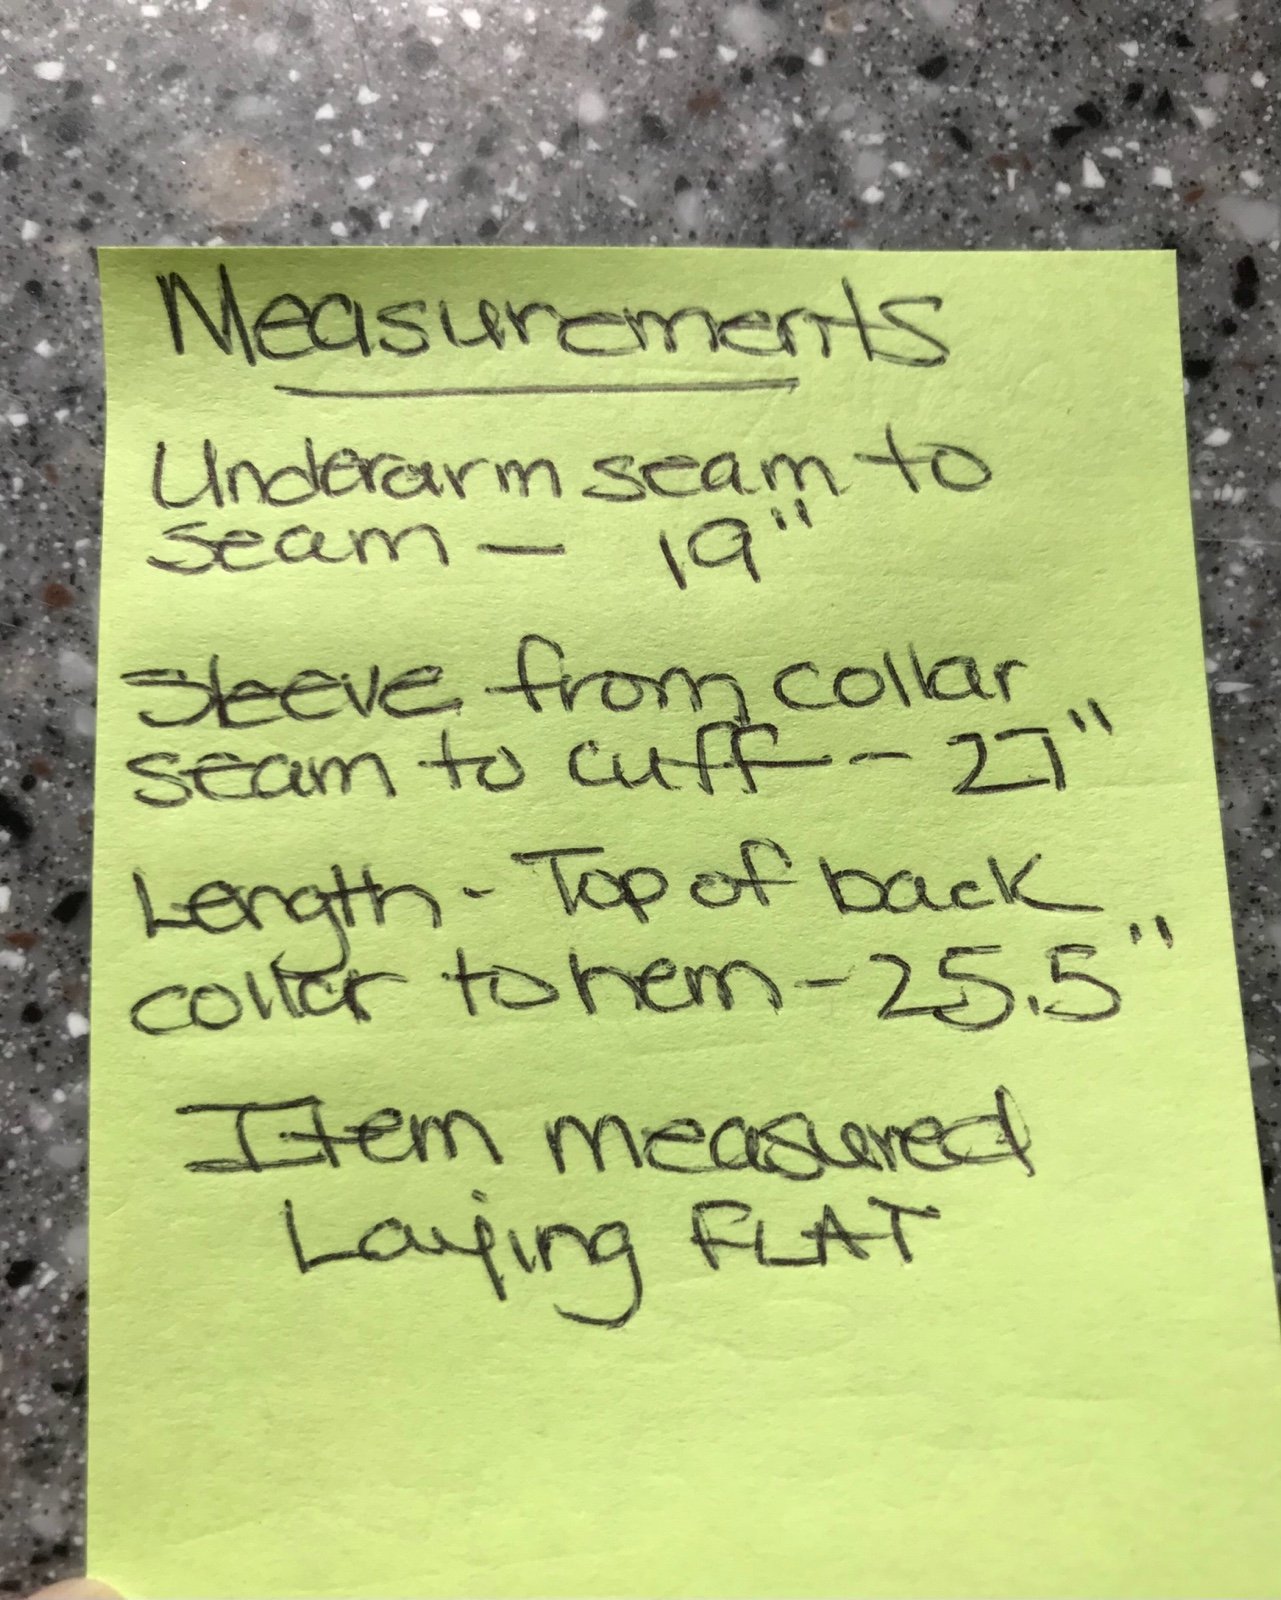 Measurements
Underarm seam to
seam — 19"
Sleeve from collar
seam to cuff -- 27"
Length - Top of back
collar to hem - 25.5"
Item measured
Laying FLAT